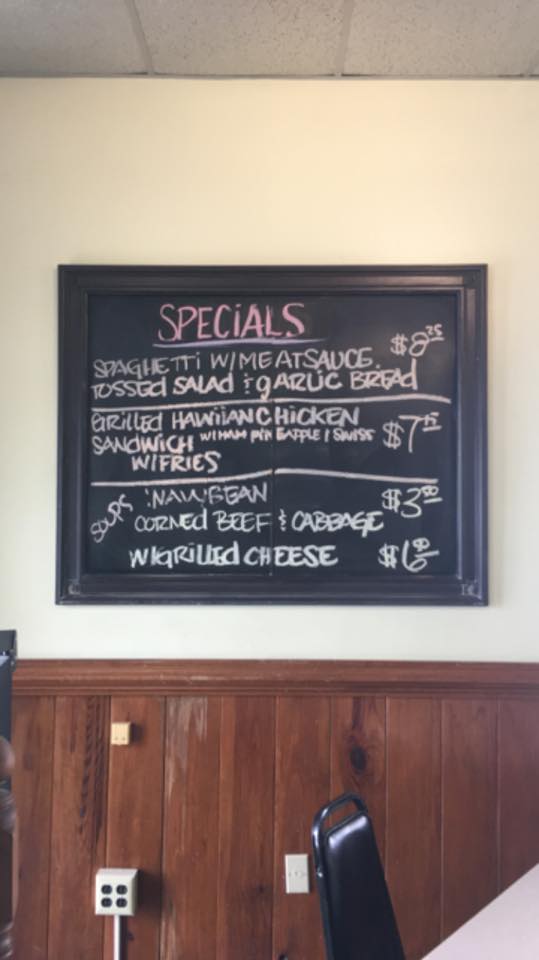 SPECiALS
SPAGHETTi W/MEATSAUCE $8.25
TOSSEd SALAd & gARLiC BREAd
GRillEd HAWiiAN CHiCKEN
SANdWiCH W/HAM PiNEAPPLE / SWiSS $7
W/FRiES
SOUPS NAVY BEAN $3.00
CORNEd BEEF & CABBAGE
W/GRiLLEd CHEESE $6